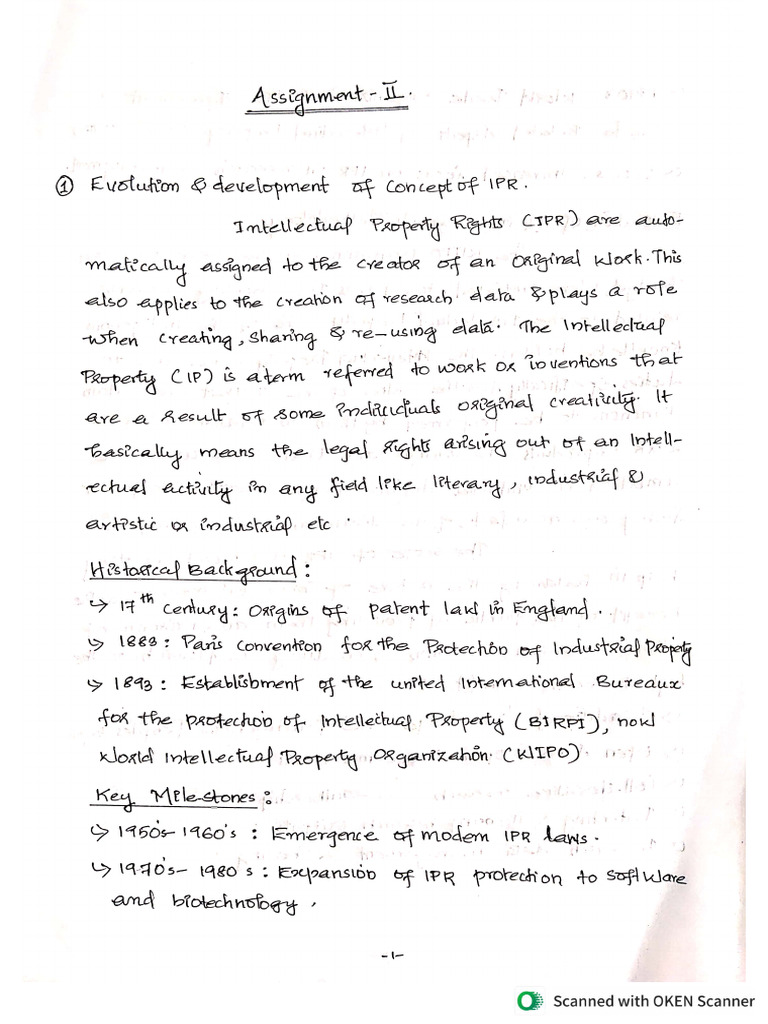 Assignment - II.
① Evolution & development of concept of IPR.
Intellectual Property Rights (IPR) are auto-
matically assigned to the creator of an original work. This
also applies to the creation of research data & plays a role
when creating, sharing & re-using data. The Intellectual
Property (IP) is a term referred to work or inventions that
are a result of some individuals original creativity. It
basically means the legal rights arising out of an Intell-
ectual activity in any field like literary, industrial &
artistic or industrial etc.
Historical Background:
↳ 17th century: Origins of patent law in England.
↳ 1883: Paris convention for the Protection of Industrial Property
↳ 1893: Establishment of the united International Bureaux
for the protection of Intellectual Property (BIRPI), now
World Intellectual Property Organization. (WIPO)
Key Mile-stones:
↳ 1950's - 1960's : Emergence of modern IPR laws.
↳ 1970's - 1980's : Expansion of IPR protection to software
and biotechnology.
-1-
Scanned with OKEN Scanner